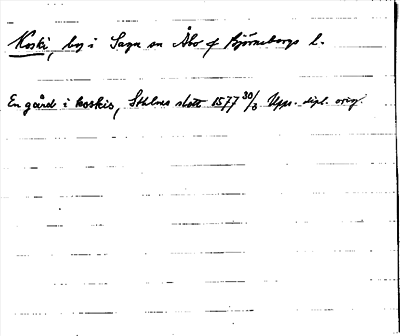 Koski, by i Sagu sn Åbo o Björneborgs l.
En gård i koskis, Sthlms slott 1577 30/3 Upps. dipl. orig.